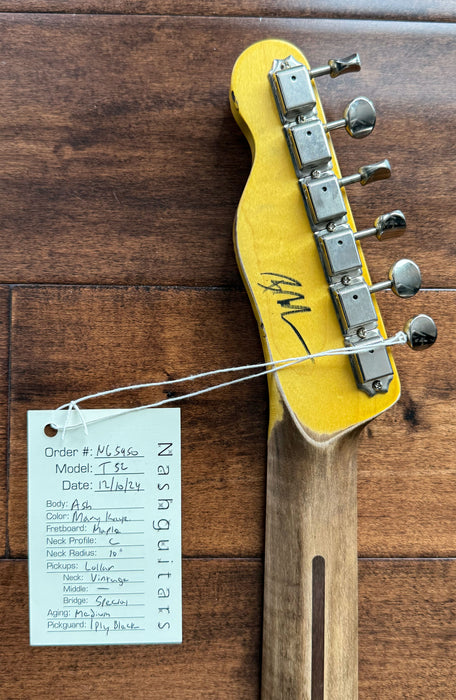 Order #: NG5950
Model: T 52
Date: 12/10/24
Body: Ash
Color: Mary Kaye
Fretboard: Maple
Neck Profile: C
Neck Radius: 10"
Pickups: Lollar
Neck: Vintage
Middle: —
Bridge: Special
Aging: Medium
Pickguard: 1 Ply Black
Nashguitars